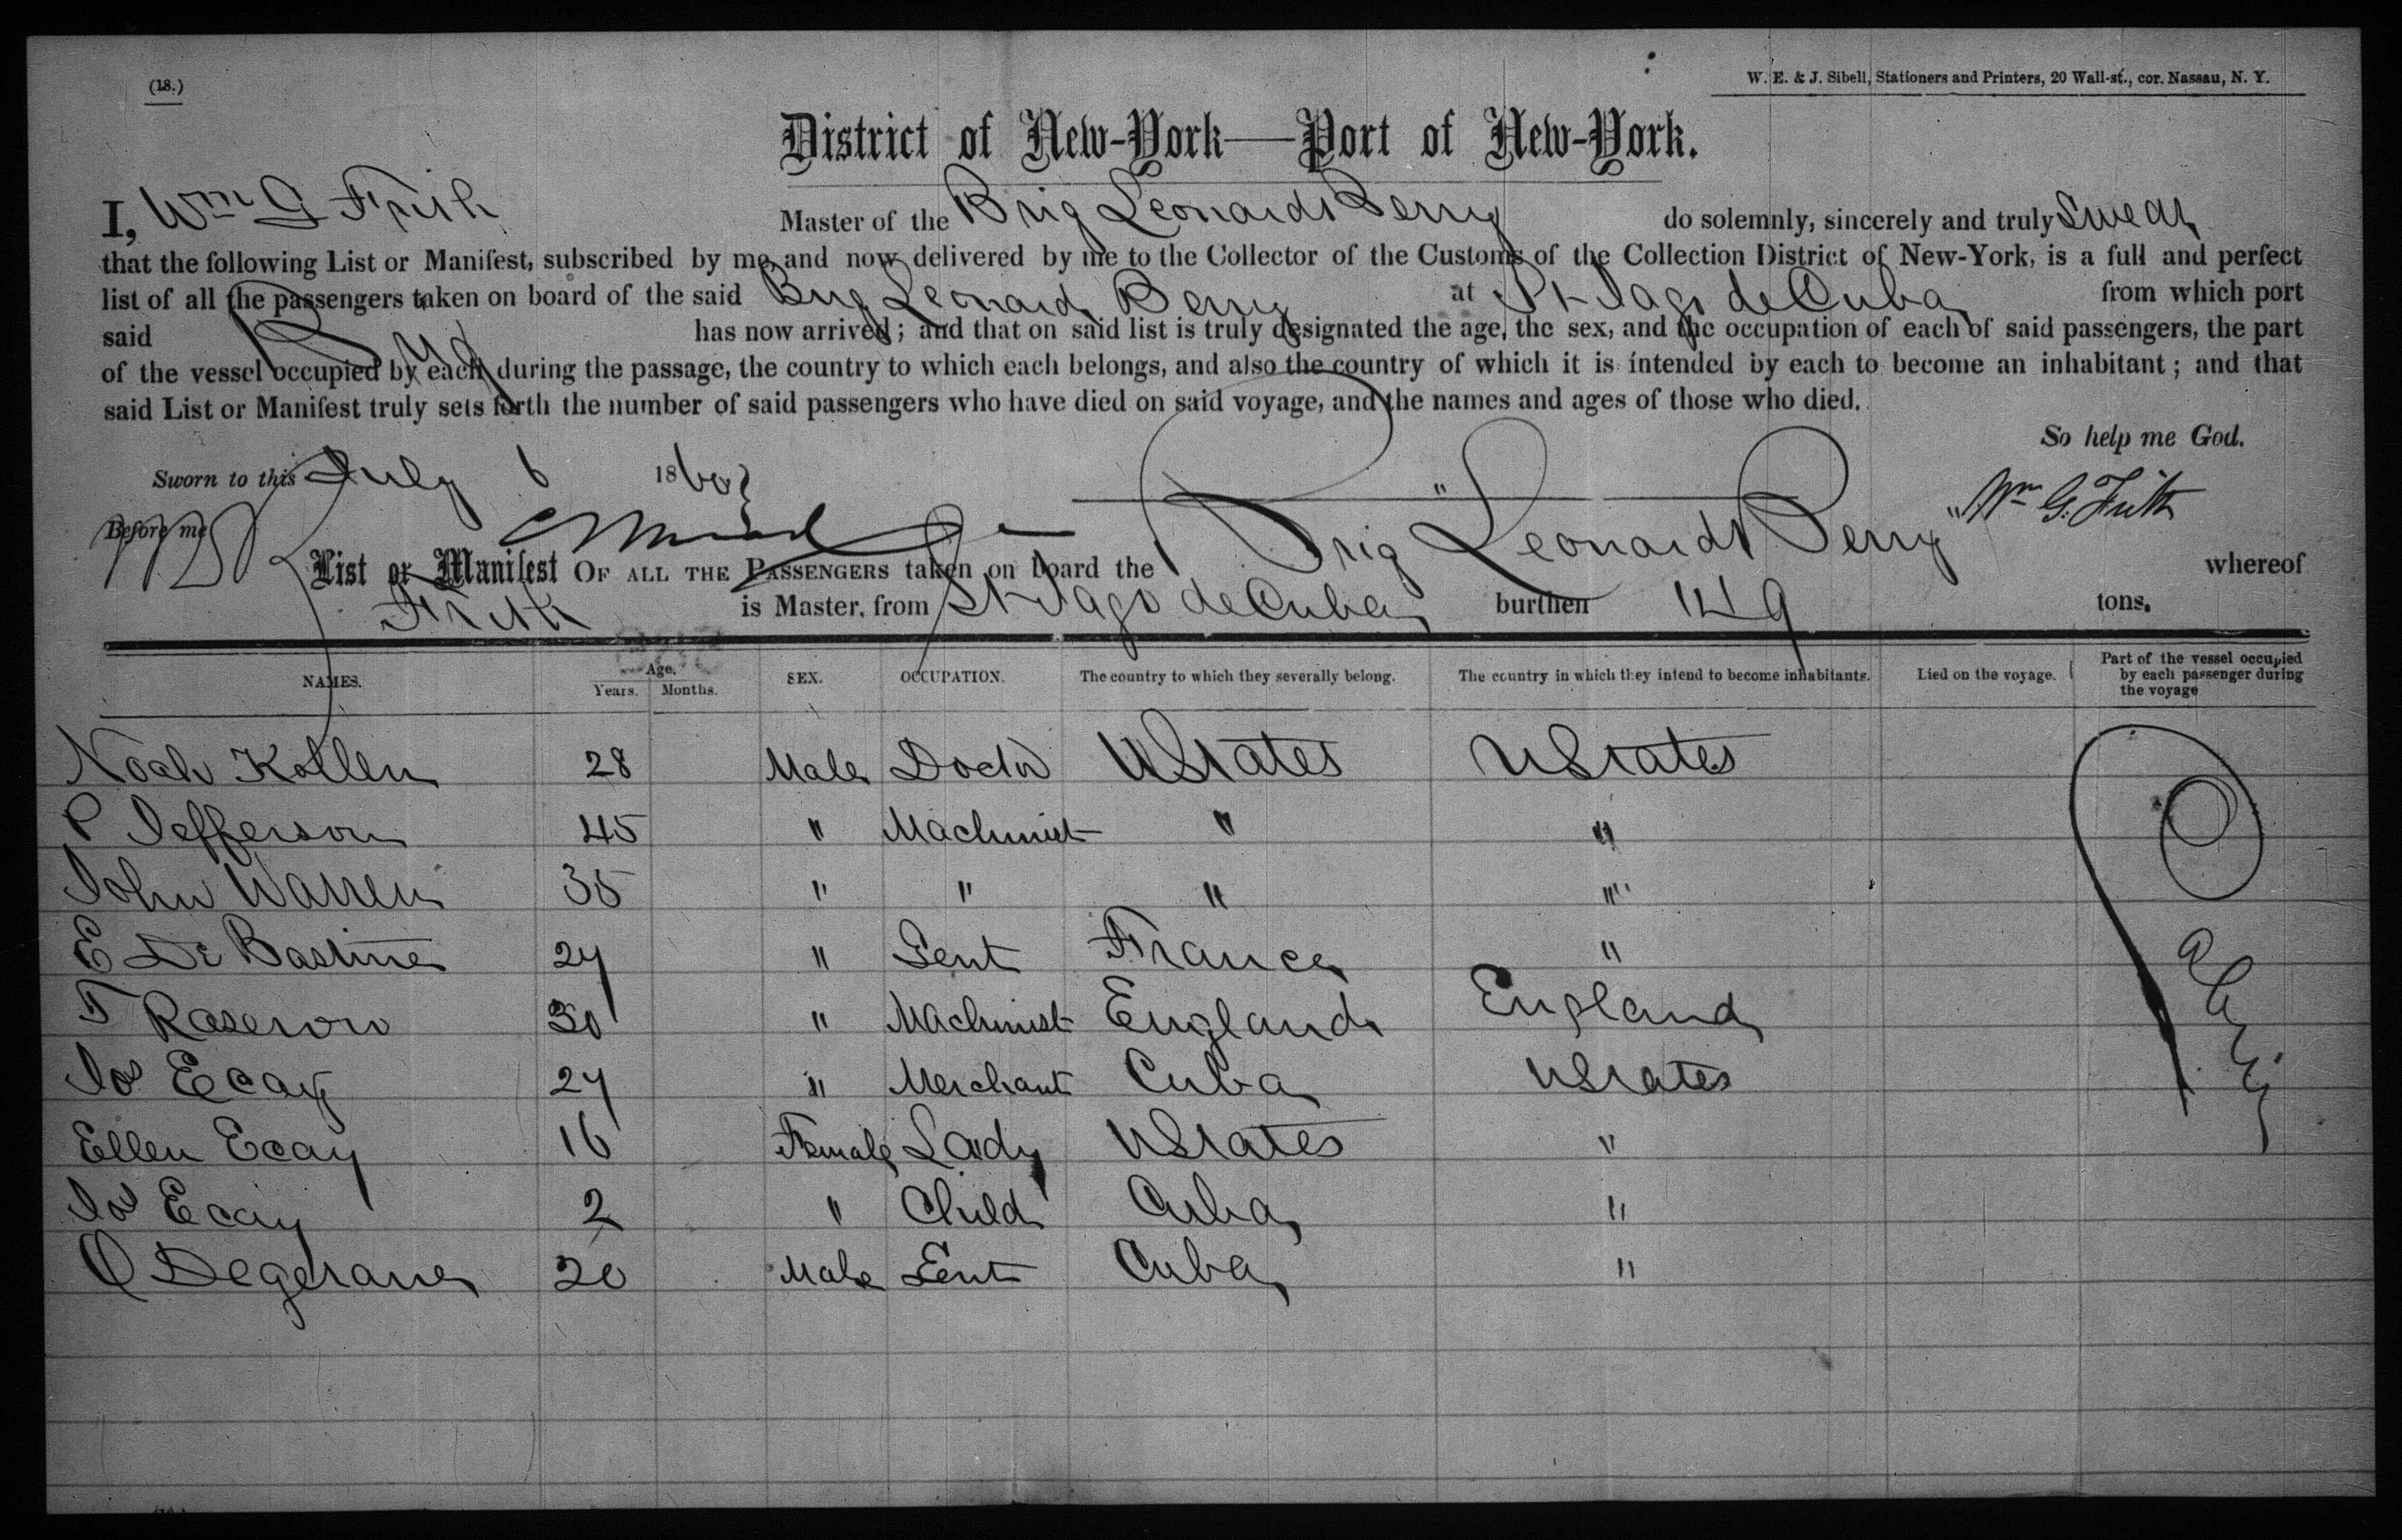 (18.)
W. E. & J. Sibell, Stationers and Printers, 20 Wall-st., cor. Nassau, N. Y.
District of New-York—Port of New-York.
I, Wm G Frith Master of the Brig Leonard Berry do solemnly, sincerely and truly Swear
that the following List or Manifest, subscribed by me, and now delivered by me to the Collector of the Customs of the Collection District of New-York, is a full and perfect
list of all the passengers taken on board of the said Brig Leonard Berry at St Jago de Cuba from which port
said Brig has now arrived; and that on said list is truly designated the age, the sex, and the occupation of each of said passengers, the part
of the vessel occupied by each during the passage, the country to which each belongs, and also the country of which it is intended by each to become an inhabitant; and that
said List or Manifest truly sets forth the number of said passengers who have died on said voyage, and the names and ages of those who died.
So help me God.
Sworn to this July 6 1860
Wm G. Frith
Before me
List or Manifest OF ALL THE PASSENGERS taken on board the Brig "Leonard Berry" whereof
Frith is Master, from St Jago de Cuba burthen 149 tons.
NAMES. Age. Years. Months. SEX. OCCUPATION. The country to which they severally belong. The country in which they intend to become inhabitants. Died on the voyage. Part of the vessel occupied by each passenger during the voyage
Noah Kollen 28 Male Doctr UStates UStates
P Jefferson 45 " Machinist " "
John Warren 35 " " " "
E De Bastine 24 " Gent France "
T Roserow 30 " Machinist England England
Jos Ecay 24 " Merchant Cuba UStates
Ellen Ecay 16 Female Lady UStates "
Jos Ecay 2 " Child Cuba "
O Degerane 20 Male Gent Cuba "
Cabin